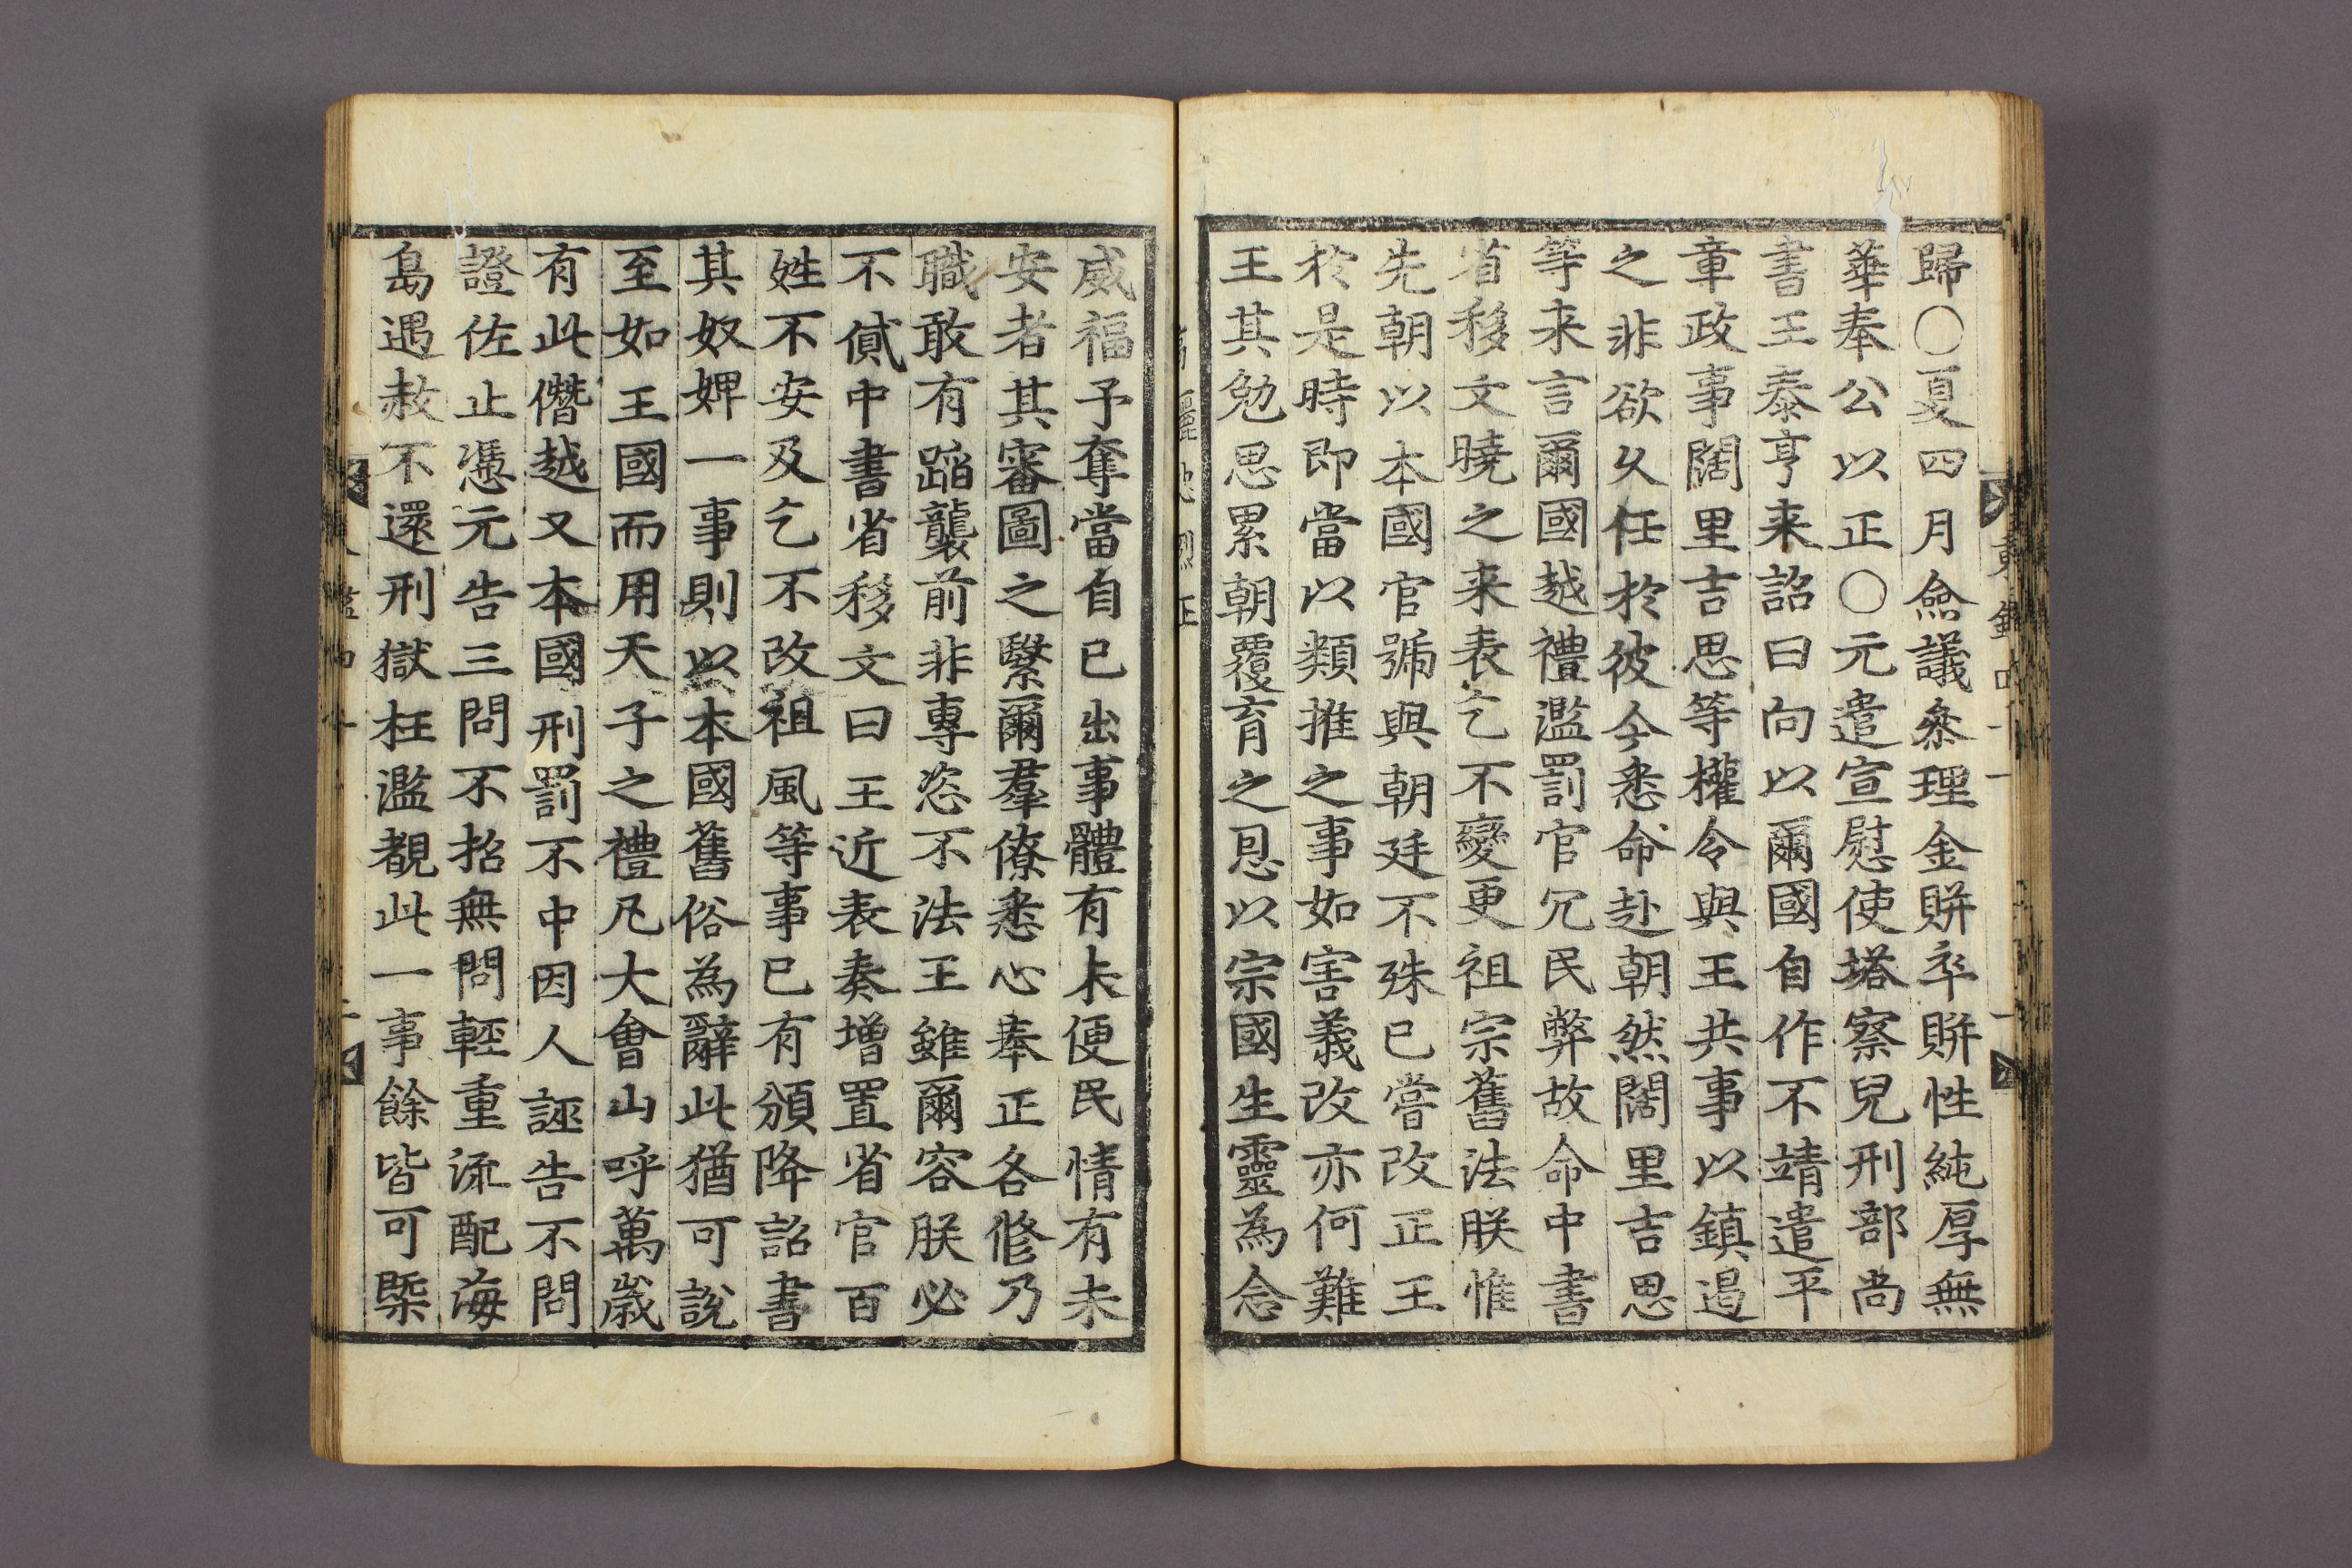 歸○夏四月僉議叅理金賆卒賆性純厚無
華奉公以正○元遣宣慰使塔察兒刑部尚
書王泰亨来詔曰向以爾國自作不靖遣平
章政事闊里吉思等權令與王共事以鎮遏
之非欲久任於彼今悉命赴朝然闊里吉思
等来言爾國越禮濫罰官冗民弊故命中書
省移文曉之来表乞不變更祖宗舊法朕惟
先朝以本國官號與朝廷不殊已嘗改正王
於是時即當以類推之事如害義改亦何難
王其勉思累朝覆育之恩以宗國生靈為念
威福予奪當自已出事體有未便民情有未
安者其審圖之繄爾羣僚悉心奉正各修乃
職敢有蹈襲前非專恣不法王雖爾容朕必
不貸中書省移文曰王近表奏增置省官百
姓不安及乞不改祖風等事已有頒降詔書
其奴婢一事則以本國舊俗為辭此猶可說
至如王國而用天子之禮凡大會山呼萬歲
有此僭越又本國刑罰不中因人誣告不問
證佐止憑元告三問不招無問輕重流配海
島遇赦不還刑獄枉濫覩此一事餘皆可槩